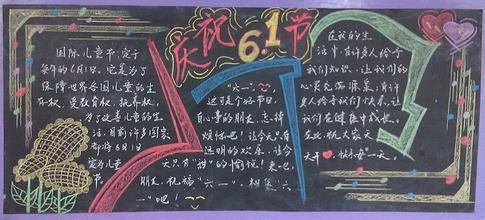 庆祝6.1节
国际儿童节,定于
每年的6月1日。它是为了
保障世界各国儿童的生
存权、受教育权、抚养权,
为了改善儿童的生
活,目前许多国家
都将6月1日
定为儿童
节。
"六一",
这可是个好节日,
有心事的朋友,忘掉
烦恼吧!让今天只有
透明的欢乐,让今
天只有"甜"的愉悦!来吧,
朋友,祝福"六一",相笑"六
一"吧!
在我的生
活中,有许多人给予
我们知识,让我们的
心灵充满
有许
多人给予我们快乐,让
我们在健康中成长,
在此,祝大家天
天开心,快乐每一天。